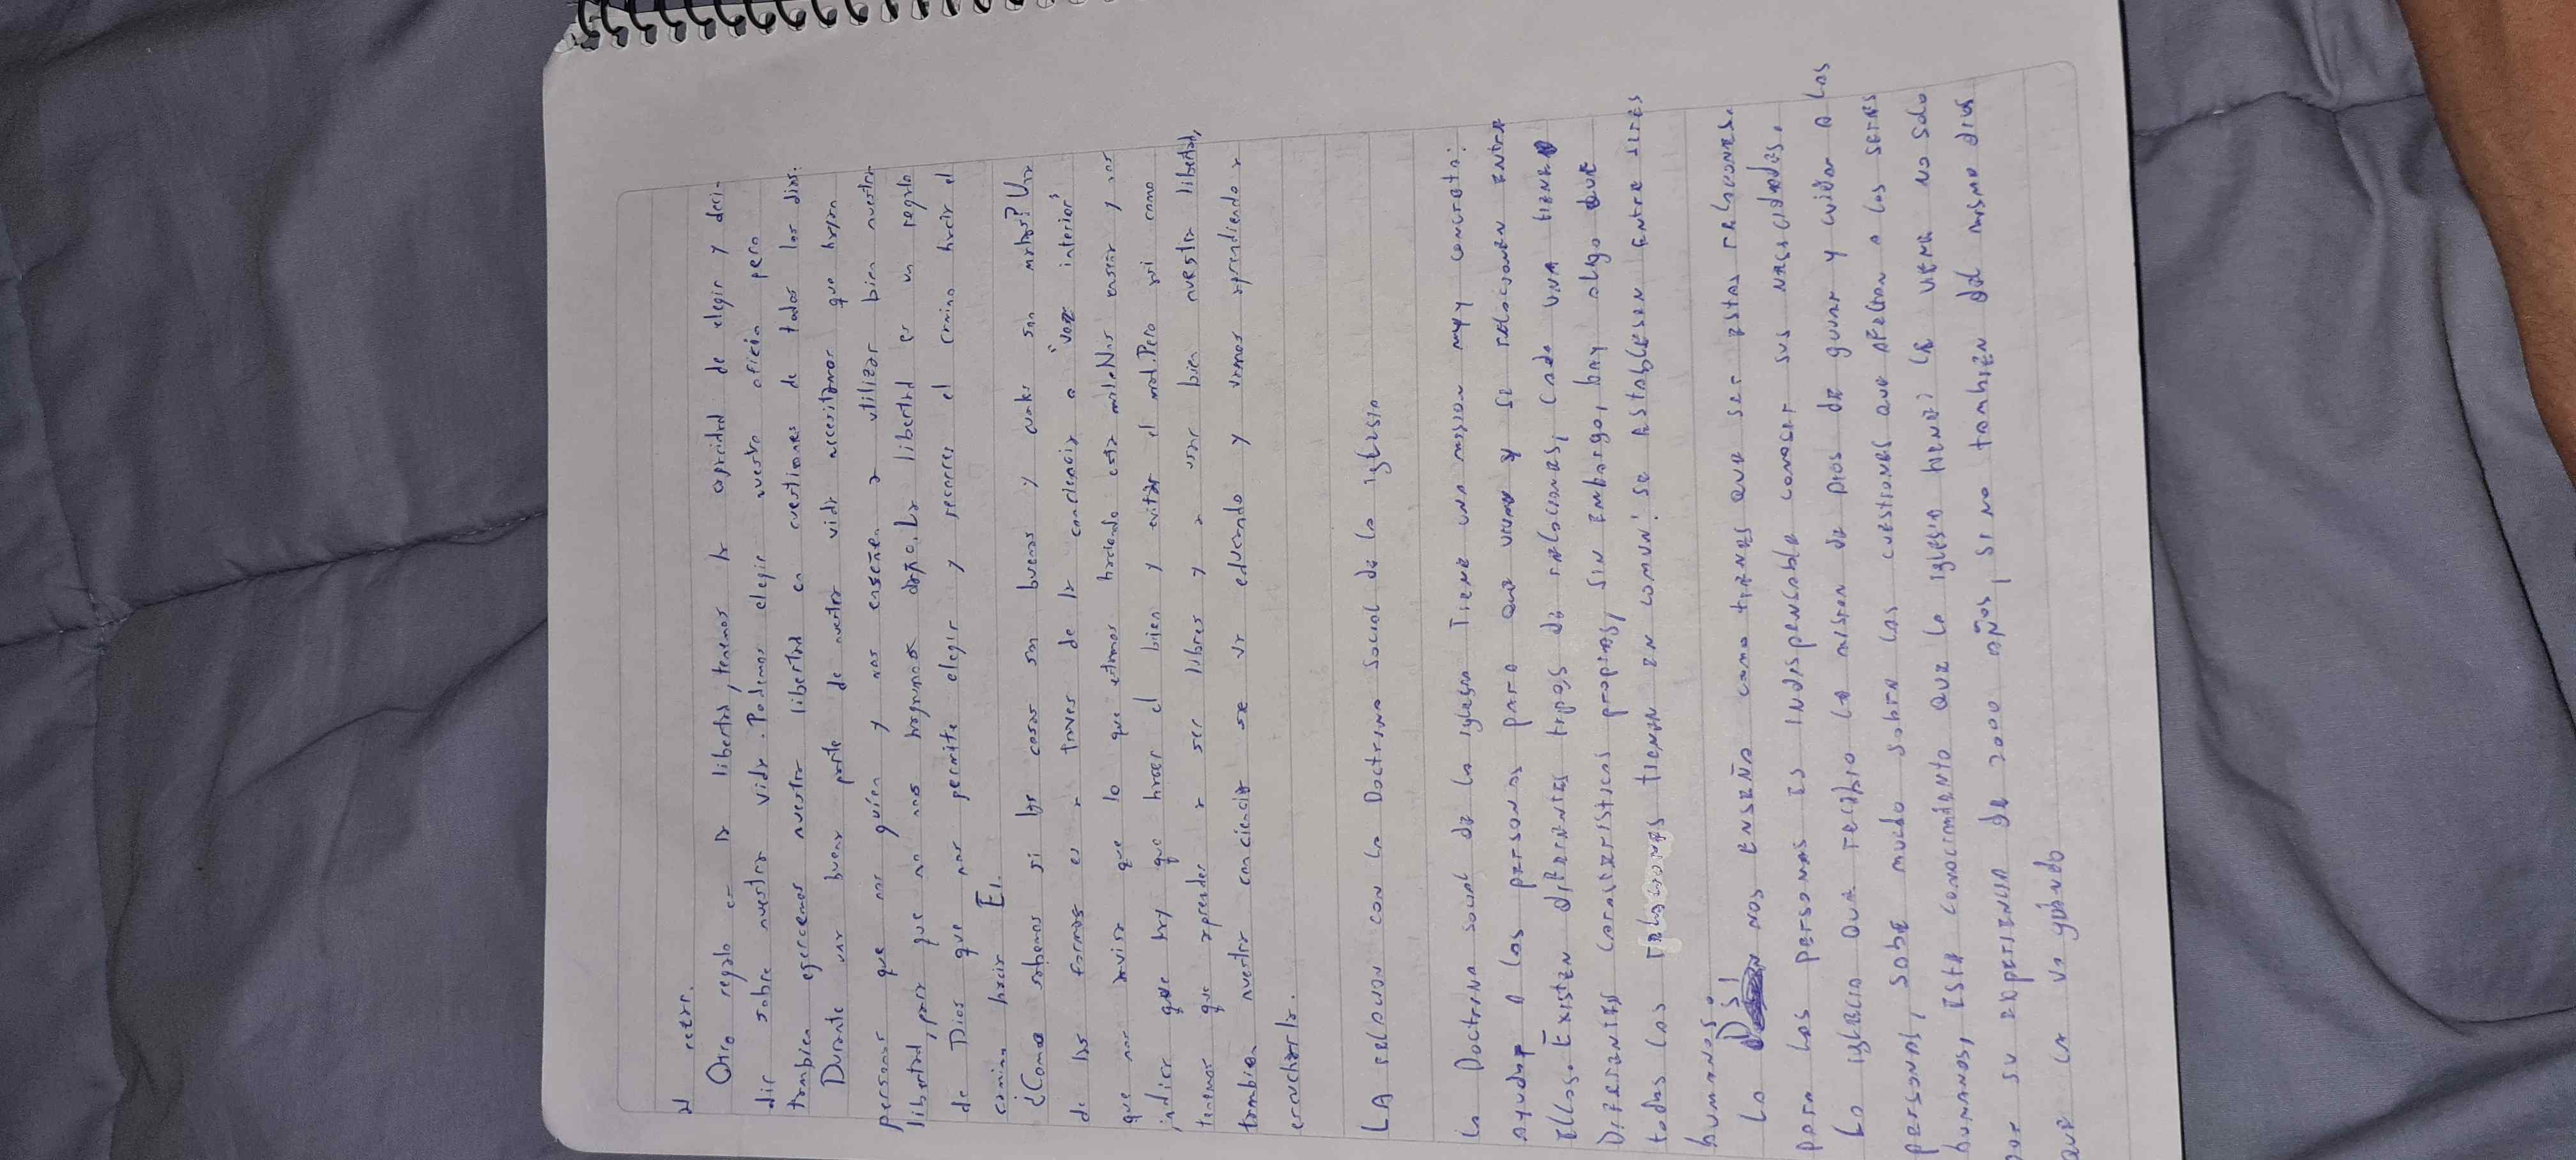 Otro regalo es la libertad, tenemos la capacidad de elegir y deci-
dir sobre nuestra vida. Podemos elegir nuestro oficio pero
tambien ejercemos nuestra libertad en cuestiones de todos los dias.
Durante una buena parte de nuestra vida necesitamos que haya
personas que nos guíen y nos enseñen a utilizar bien nuestra
libertad, para que no nos hagamos daño. La libertad es un regalo
de Dios que nos permite elegir y recorrer el camino hacia el
camino hacia Él.
¿Como sabemos si las cosas son buenas y cuales son malas? Una
de las formas es a traves de la conciencia o "voz interior"
que nos avisa que lo que estamos haciendo esta mal. Nos enseña y nos
indica que hay que hacer el bien y evitar el mal. Pero asi como
tenemos que aprender a ser libres y a usar bien nuestra libertad,
tambien nuestra conciencia se va educando y vamos aprendiendo a
escucharla.
LA relacion con la Doctrina Social de la iglesia
La Doctrina social de la iglesia Tiene una mision muy concreta:
ayudar a las personas para que vivan y se relacionen entre
ellos. Existen diferentes tipos de relaciones, cada una tiene
Diferentes caracteristicas propias, sin embargo, hay algo que
todas las relaciones tienen en comun: se establesen entre seres
humanos.
La DSI nos enseña como tienes que ser estas relaciones.
para las personas es indispensable conoser sus necesidades.
La iglecia que recibio la mision de Dios de guiar y cuidar a las
personas, sabe mucho sobre las cuestiones que afectan a los seres
humanos, este conocimiento que la iglesia tiene; le viene no solo
por su experiencia de 2000 años, si no tambien del mismo dios
que la va guiando